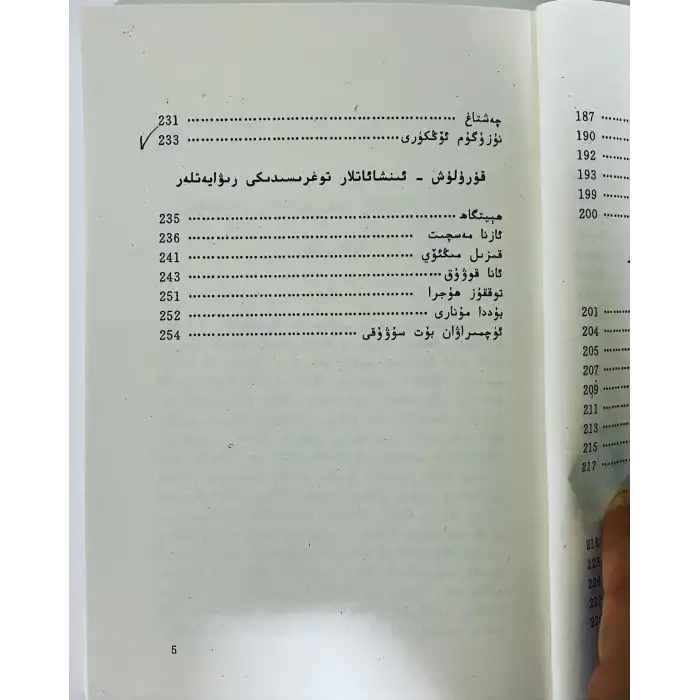 چەشتاغ ........................................ 231
نۇزۇگۇم ئۆڭكۈرى ........................................ 233
قۇرۇلۇش - ئىنشائاتلار توغرىسىدىكى رىۋايەتلەر
ھېيتگاھ ........................................ 235
ئازنا مەسچىت ........................................ 236
قىزىل مىڭئۆي ........................................ 241
ئانا قوۋۇق ........................................ 243
توققۇز ھۇجرا ........................................ 251
بۇددا مۇنارى ........................................ 252
ئۈچمىراۋان بۇت سۇۋۇقى ........................................ 254
5
187
190
192
193
199
200
201
204
205
207
209
211
213
215
217
218